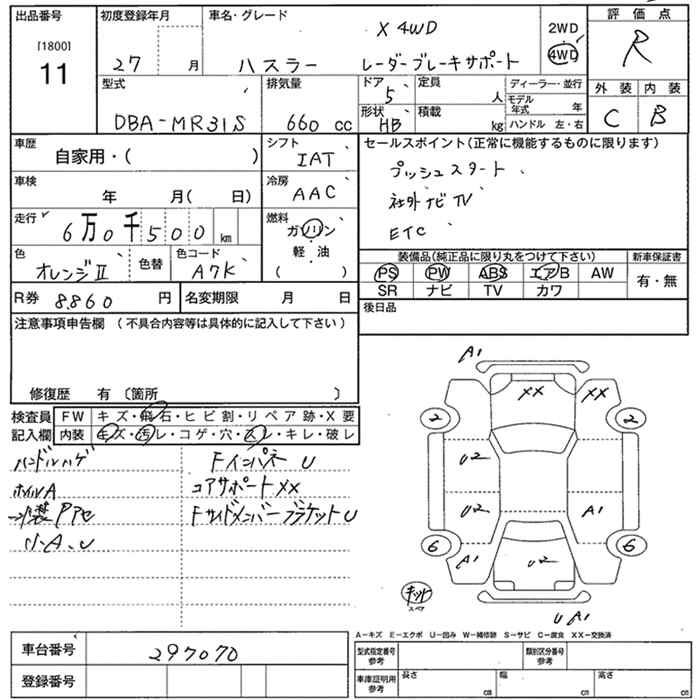 出品番号 初度登録年月 車名・グレード 評価点
[1800]
11
27 月
ハスラー
X 4WD
レーダーブレーキサポート
2WD
4WD
R
型式 排気量 ドア 定員 ディーラー・並行 外装 内装
DBA-MR31S
660 cc
5
人
モデル年式 年
形状 積載
HB
kg
ハンドル 左・右
C B
車歴 シフト セールスポイント(正常に機能するものに限ります)
自家用・( )
IAT
プッシュスタート
車検 冷房
年 月( 日)
AAC
社外ナビTV
走行 燃料
6万0千500 km
ガソリン
軽・油
( )
ETC
色 色替 色コード
オレンジⅡ
A7K
装備品(純正品に限り丸をつけて下さい) 新車保証書
PS PW ABS エアB AW
SR ナビ TV カワ
有・無
R券 8.860 円 名変期限 月 日
後日品
注意事項申告欄 (不具合内容等は具体的に記入して下さい)
修復歴 有 〔箇所 〕
検査員記入欄
FW キズ・飛石・ヒビ割・リペア跡・X要
内装 キズ・汚レ・コゲ・穴・スレ・キレ・破レ
ハンドルハゲ
FインパネU
ホイルA
コアサポートXX
外装アアセ
FサイドメンバーブラケットU
小A、U
A1
XX XX
2 2
U2
U2 A1
6 6
A1 U2
キット
スペア
UA1
A-キズ E-エクボ U-凹み W-補修跡 S-サビ C-腐食 XX-交換済
車台番号 297070
登録番号
型式指定番号参考 類別区分番号参考
車庫証明用参考 長さ cm 幅 cm 高さ cm